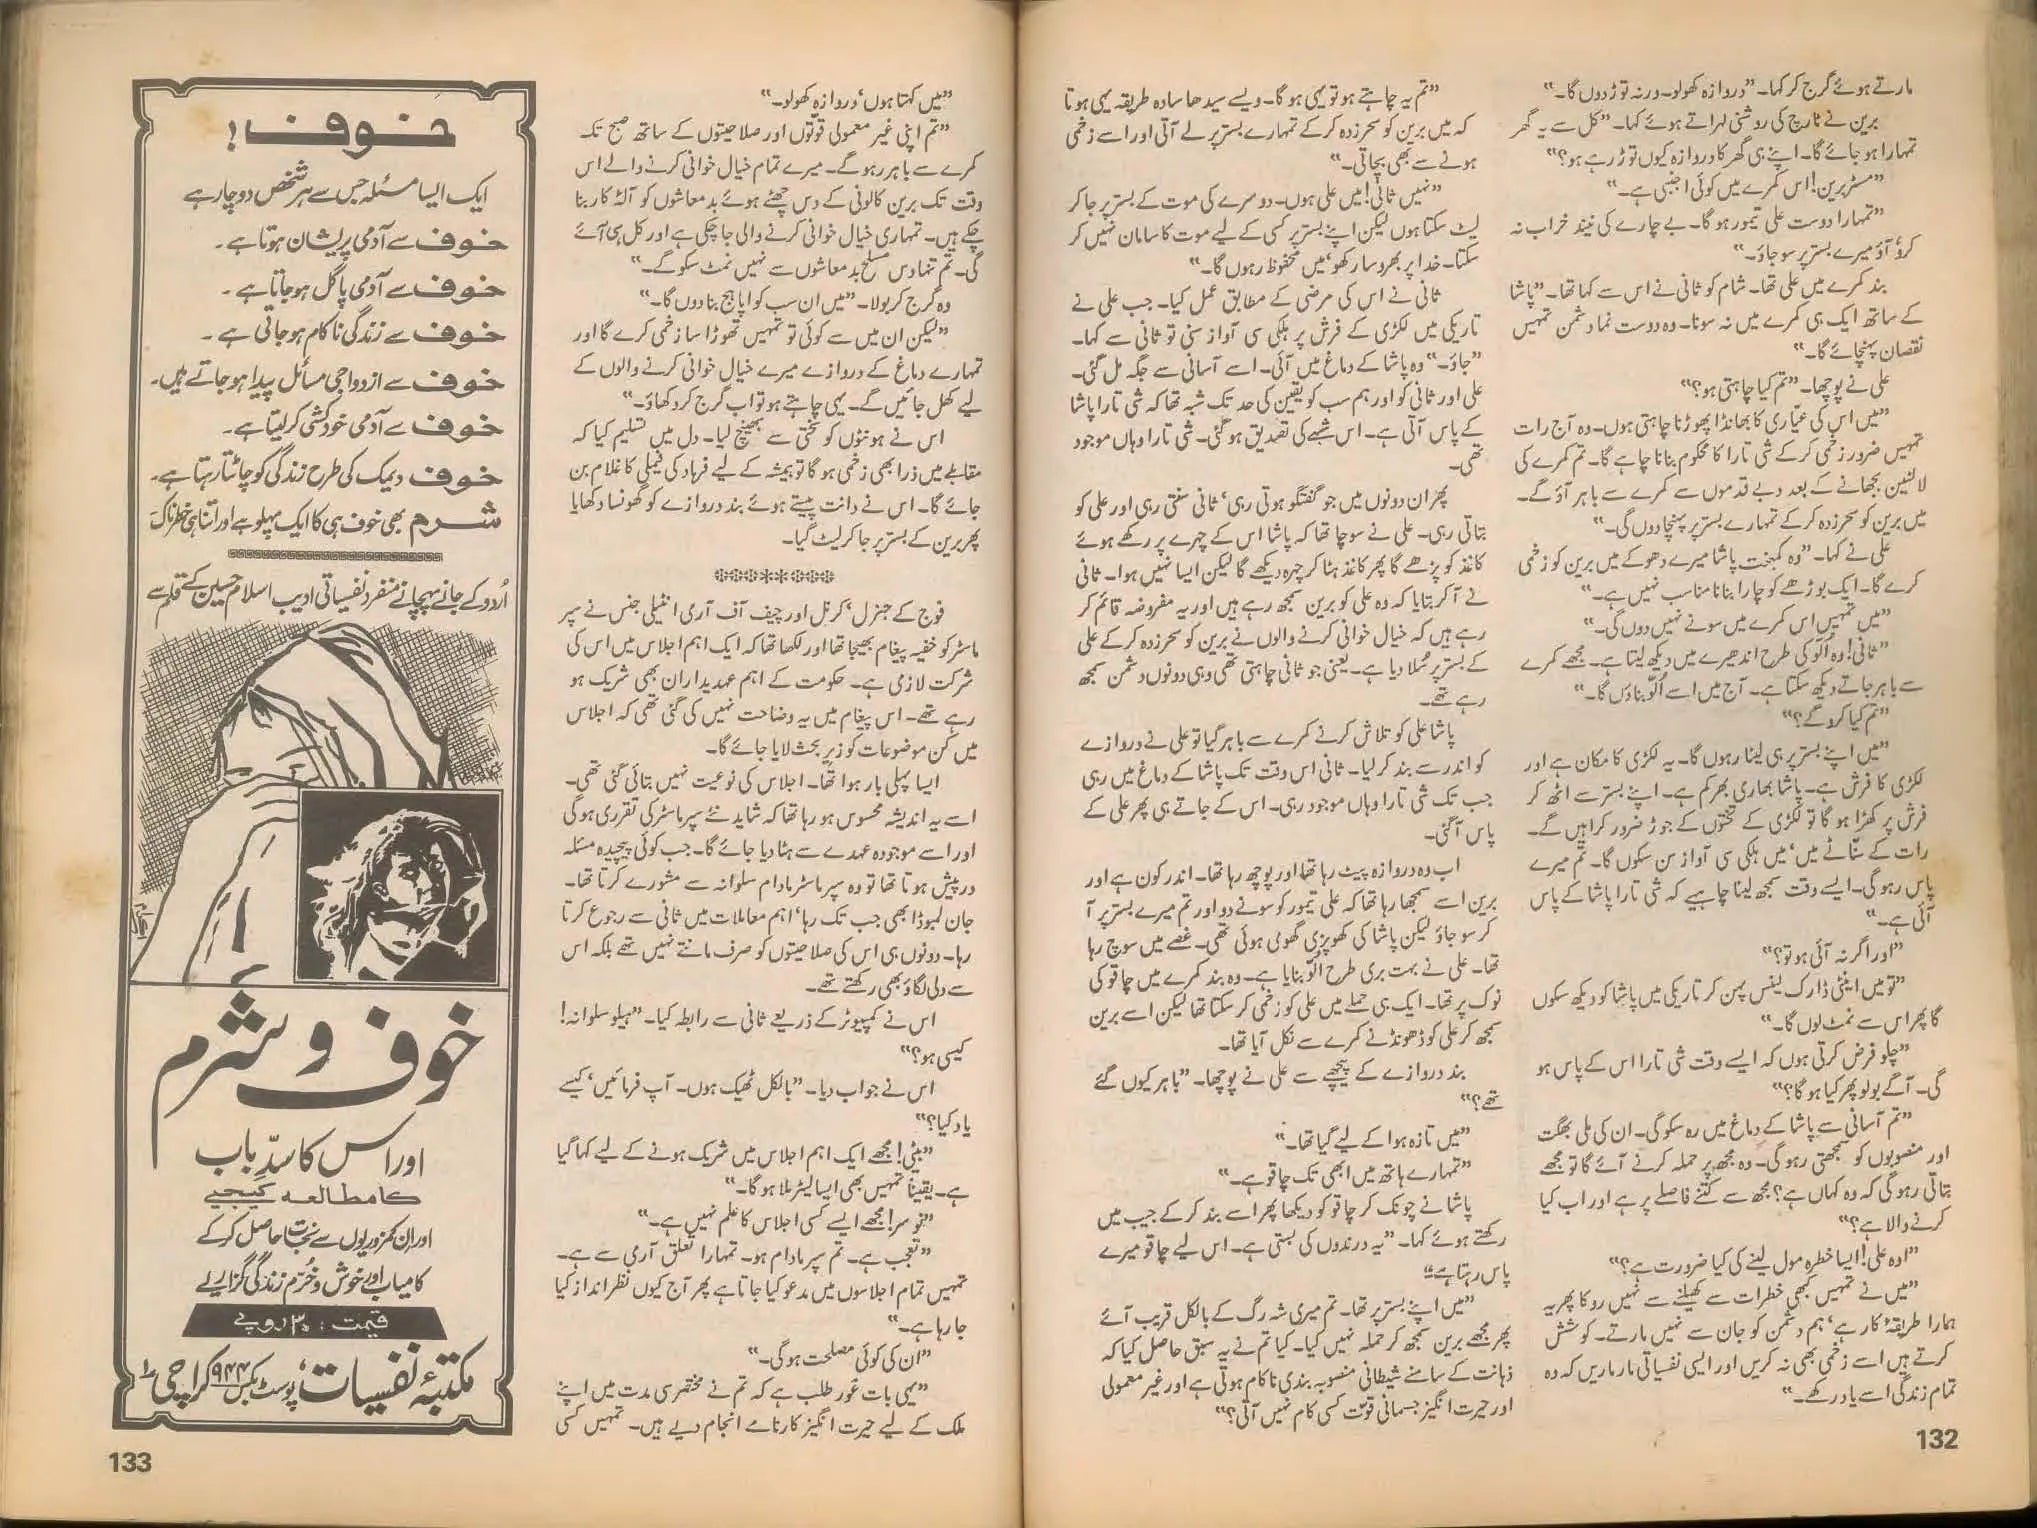 مارتے ہوئے گرج کر کہا۔ ”دروازہ کھولو۔ ورنہ توڑ دوں گا۔“
برین نے ٹارچ کی روشنی لہراتے ہوئے کہا۔ ”کل سے یہ گھر
تمہارا ہو جائے گا۔ اپنے ہی گھر کا دروازہ کیوں توڑ رہے ہو؟“
”مسٹر برین! اس کمرے میں کوئی اجنبی ہے۔“
”تمہارا دوست علی تیمور ہو گا۔ بے چارے کی نیند خراب نہ
کرو‘ آؤ میرے بستر پر سو جاؤ۔“
بند کمرے میں علی تھا۔ شام کو ثانی نے اس سے کہا تھا۔ ”پاشا
کے ساتھ ایک ہی کمرے میں نہ سونا۔ وہ دوست نما دشمن تمہیں
نقصان پہنچائے گا۔“
علی نے پوچھا۔ ”تم کیا چاہتی ہو؟“
”میں اس کی عیّاری کا بھانڈا پھوڑنا چاہتی ہوں۔ وہ آج رات
تمہیں ضرور زخمی کر کے شی تارا کا محکوم بنانا چاہے گا۔ تم کمرے کی
لالٹین بجھانے کے بعد دبے قدموں سے کمرے سے باہر آؤ گے۔
میں برین کو سحر زدہ کر کے تمہارے بستر پر پہنچا دوں گی۔“
علی نے کہا۔ ”وہ کمبخت پاشا میرے دھوکے میں برین کو زخمی
کرے گا۔ ایک بوڑھے کو چارا بنانا مناسب نہیں ہے۔“
”میں تمہیں اس کمرے میں سونے نہیں دوں گی۔“
”ثانی! وہ اُلّو کی طرح اندھیرے میں دیکھ لیتا ہے۔ مجھے کمرے
سے باہر جاتے دیکھ سکتا ہے۔ آج میں اسے اُلّو بناؤں گا۔“
”تم کیا کرو گے؟“
”میں اپنے بستر پر ہی لیٹا رہوں گا۔ یہ لکڑی کا مکان ہے اور
لکڑی کا فرش ہے۔ پاشا بھاری بھرکم ہے۔ اپنے بستر سے اٹھ کر
فرش پر کھڑا ہو گا تو لکڑی کے تختوں کے جوڑ ضرور کراہیں گے۔
رات کے سنّاٹے میں‘ میں ہلکی سی آواز سن سکوں گا۔ تم میرے
پاس رہو گی۔ ایسے وقت سمجھ لینا چاہیے کہ شی تارا پاشا کے پاس
آئی ہے۔“
”اور اگر نہ آئی ہو تو؟“
”تو میں اینٹی ڈارک لینس پہن کر تاریکی میں پاشا کو دیکھ سکوں
گا پھر اس سے نمٹ لوں گا۔“
”چلو فرض کرتی ہوں کہ ایسے وقت شی تارا اس کے پاس ہو
گی۔ آگے بولو پھر کیا ہو گا؟“
”تم آسانی سے پاشا کے دماغ میں رہ سکو گی۔ ان کی ملی بھگت
اور منصوبوں کو سمجھتی رہو گی۔ وہ مجھ پر حملہ کرنے آئے گا تو مجھے
بتاتی رہو گی کہ وہ کہاں ہے؟ مجھ سے کتنے فاصلے پر ہے اور اب کیا
کرنے والا ہے؟“
”اوہ علی! ایسا خطرہ مول لینے کی کیا ضرورت ہے؟“
”میں نے تمہیں کبھی خطرات سے کھیلنے سے نہیں روکا پھر یہ
ہمارا طریقۂ کار ہے‘ ہم دشمن کو جان سے نہیں مارتے۔ کوشش
کرتے ہیں اسے زخمی بھی نہ کریں اور ایسی نفسیاتی مار ماریں کہ وہ
تمام زندگی اسے یاد رکھے۔“
132
”تم یہ چاہتے ہو تو یہی ہو گا۔ ویسے سیدھا سادہ طریقہ یہی ہوتا
کہ میں برین کو سحر زدہ کر کے تمہارے بستر پر لے آتی اور اسے زخمی
ہونے سے بھی بچاتی۔“
”نہیں ثانی! میں علی ہوں۔ دوسرے کی موت کے بستر پر جا کر
لیٹ سکتا ہوں لیکن اپنے بستر پر کسی کے لیے موت کا سامان نہیں کر
سکتا۔ خدا پر بھروسا رکھو‘ میں محفوظ رہوں گا۔“
ثانی نے اس کی مرضی کے مطابق عمل کیا۔ جب علی نے
تاریکی میں لکڑی کے فرش پر ہلکی سی آواز سنی تو ثانی سے کہا۔
”جاؤ۔“ وہ پاشا کے دماغ میں آئی۔ اسے آسانی سے جگہ مل گئی۔
علی اور ثانی کو اور ہم سب کو یقین کی حد تک شبہ تھا کہ شی تارا پاشا
کے پاس آتی ہے۔ اس شبہے کی تصدیق ہو گئی۔ شی تارا وہاں موجود
تھی۔
پھر ان دونوں میں جو گفتگو ہوتی رہی‘ ثانی سنتی رہی اور علی کو
بتاتی رہی۔ علی نے سوچا تھا کہ پاشا اس کے چہرے پر رکھے ہوئے
کاغذ کو پڑھے گا پھر کاغذ ہٹا کر چہرہ دیکھے گا لیکن ایسا نہیں ہوا۔ ثانی
نے آ کر بتایا کہ وہ علی کو برین سمجھ رہے ہیں اور یہ مفروضہ قائم کر
رہے ہیں کہ خیال خوانی کرنے والوں نے برین کو سحر زدہ کر کے علی
کے بستر پر سُلا دیا ہے۔ یعنی جو ثانی چاہتی تھی وہی دونوں دشمن سمجھ
رہے تھے۔
پاشا علی کو تلاش کرنے کمرے سے باہر گیا تو علی نے دروازے
کو اندر سے بند کر لیا۔ ثانی اس وقت تک پاشا کے دماغ میں رہی
جب تک شی تارا وہاں موجود رہی۔ اس کے جاتے ہی پھر علی کے
پاس آ گئی۔
اب وہ دروازہ پیٹ رہا تھا اور پوچھ رہا تھا۔ اندر کون ہے اور
برین اسے سمجھا رہا تھا کہ علی تیمور کو سونے دو اور تم میرے بستر پر آ
کر سو جاؤ لیکن پاشا کی کھوپڑی گھومی ہوئی تھی۔ غصے میں سوچ رہا
تھا۔ علی نے بہت بری طرح الّو بنایا ہے۔ وہ بند کمرے میں چاقو کی
نوک پر تھا۔ ایک ہی حملے میں علی کو زخمی کر سکتا تھا لیکن اسے برین
سمجھ کر علی کو ڈھونڈنے کمرے سے نکل آیا تھا۔
بند دروازے کے پیچھے سے علی نے پوچھا۔ ”باہر کیوں گئے
تھے؟“
”میں تازہ ہوا کے لیے گیا تھا۔“
”تمہارے ہاتھ میں ابھی تک چاقو ہے۔“
پاشا نے چونک کر چاقو کو دیکھا پھر اسے بند کر کے جیب میں
رکھتے ہوئے کہا۔ ”یہ درندوں کی بستی ہے۔ اس لیے چاقو میرے
پاس رہتا ہے“
”میں اپنے بستر پر تھا۔ تم میری شہ رگ کے بالکل قریب آئے
پھر مجھے برین سمجھ کر حملہ نہیں کیا۔ کیا تم نے یہ سبق حاصل کیا کہ
ذہانت کے سامنے شیطانی منصوبہ بندی ناکام ہوتی ہے اور غیر معمولی
اور حیرت انگیز جسمانی قوّت کسی کام نہیں آتی؟“
”میں کہتا ہوں‘ دروازہ کھولو۔“
”تم اپنی غیر معمولی قوتوں اور صلاحیتوں کے ساتھ صبح تک
کمرے سے باہر رہو گے۔ میرے تمام خیال خوانی کرنے والے اس
وقت تک برین کالونی کے دس چھٹے ہوئے بدمعاشوں کو آلۂ کار بنا
چکے ہیں۔ تمہاری خیال خوانی کرنے والی جا چکی ہے اور کل ہی آئے
گی۔ تم تنہا دس مسلح بدمعاشوں سے نہیں نمٹ سکو گے۔“
وہ گرج کر بولا۔ ”میں ان سب کو اپاہج بنا دوں گا۔“
”لیکن ان میں سے کوئی تو تمہیں تھوڑا سا زخمی کرے گا اور
تمہارے دماغ کے دروازے میرے خیال خوانی کرنے والوں کے
لیے کھل جائیں گے۔ یہی چاہتے ہو تو اب گرج کر دکھاؤ۔“
اس نے ہونٹوں کو سختی سے بھینچ لیا۔ دل میں تسلیم کیا کہ
مقابلے میں ذرا بھی زخمی ہو گا تو ہمیشہ کے لیے فرہاد کی فیملی کا غلام بن
جائے گا۔ اس نے دانت پیستے ہوئے بند دروازے کو گھونسا دکھایا
پھر برین کے بستر پر جا کر لیٹ گیا۔
فوج کے جنرل‘ کرنل اور چیف آف آرمی انٹیلی جنس نے سپر
ماسٹر کو خفیہ پیغام بھیجا تھا اور لکھا تھا کہ ایک اہم اجلاس میں اس کی
شرکت لازمی ہے۔ حکومت کے اہم عہدیداران بھی شریک ہو
رہے تھے۔ اس پیغام میں یہ وضاحت نہیں کی گئی تھی کہ اجلاس
میں کن موضوعات کو زیرِ بحث لایا جائے گا۔
ایسا پہلی بار ہوا تھا۔ اجلاس کی نوعیت نہیں بتائی گئی تھی۔
اسے یہ اندیشہ محسوس ہو رہا تھا کہ شاید نئے سپر ماسٹر کی تقرری ہو گی
اور اسے موجودہ عہدے سے ہٹا دیا جائے گا۔ جب کوئی پیچیدہ مسئلہ
درپیش ہوتا تھا تو وہ سپر ماسٹر مادام سلوانہ سے مشورے کرتا تھا۔
جان لمبوڈا بھی جب تک رہا‘ اہم معاملات میں ثانی سے رجوع کرتا
رہا۔ دونوں ہی اس کی صلاحیتوں کو صرف مانتے نہیں تھے بلکہ اس
سے دلی لگاؤ بھی رکھتے تھے۔
اس نے کمپیوٹر کے ذریعے ثانی سے رابطہ کیا۔ ”ہیلو سلوانہ!
کیسی ہو؟“
اس نے جواب دیا۔ ”بالکل ٹھیک ہوں۔ آپ فرمائیں‘ کیسے
یاد کیا؟“
”بیٹی! مجھے ایک اہم اجلاس میں شریک ہونے کے لیے کہا گیا
ہے۔ یقیناً تمہیں بھی ایسا لیٹر ملا ہو گا۔“
”نو سر! مجھے ایسے کسی اجلاس کا علم نہیں ہے۔“
”تعجب ہے۔ تم سپر مادام ہو۔ تمہارا تعلق آرمی سے ہے۔
تمہیں تمام اجلاسوں میں مدعو کیا جاتا ہے پھر آج کیوں نظر انداز کیا
جا رہا ہے۔“
”ان کی کوئی مصلحت ہو گی۔“
”یہی بات غور طلب ہے کہ تم نے مختصر سی مدت میں اپنے
ملک کے لیے حیرت انگیز کارنامے انجام دیے ہیں۔ تمہیں کسی
خوف!
ایک ایسا مسئلہ جس سے ہر شخص دوچار ہے
خوف سے آدمی پریشان ہوتا ہے۔
خوف سے آدمی پاگل ہو جاتا ہے۔
خوف سے زندگی ناکام ہو جاتی ہے۔
خوف سے ازدواجی مسائل پیدا ہو جاتے ہیں۔
خوف سے آدمی خودکشی کر لیتا ہے۔
خوف دیمک کی طرح زندگی کو چاٹتا رہتا ہے۔
شرم بھی خوف ہی کا ایک پہلو ہے اور اتنا ہی خطرناک
اُردو کے جانے پہچانے منفرد نفسیاتی ادیب اسلام حسین کے قلم سے
خوف و شرم
اور اس کا سدِّ باب
کا مطالعہ کیجیے
اور ان کمزوریوں سے نجات حاصل کر کے
کامیاب اور خوش و خُرّم زندگی گزاریے
قیمت : ۳۰ روپے
مکتبۂ نفسیات، پوسٹ بکس ۹۴۴ کراچی ۱
133